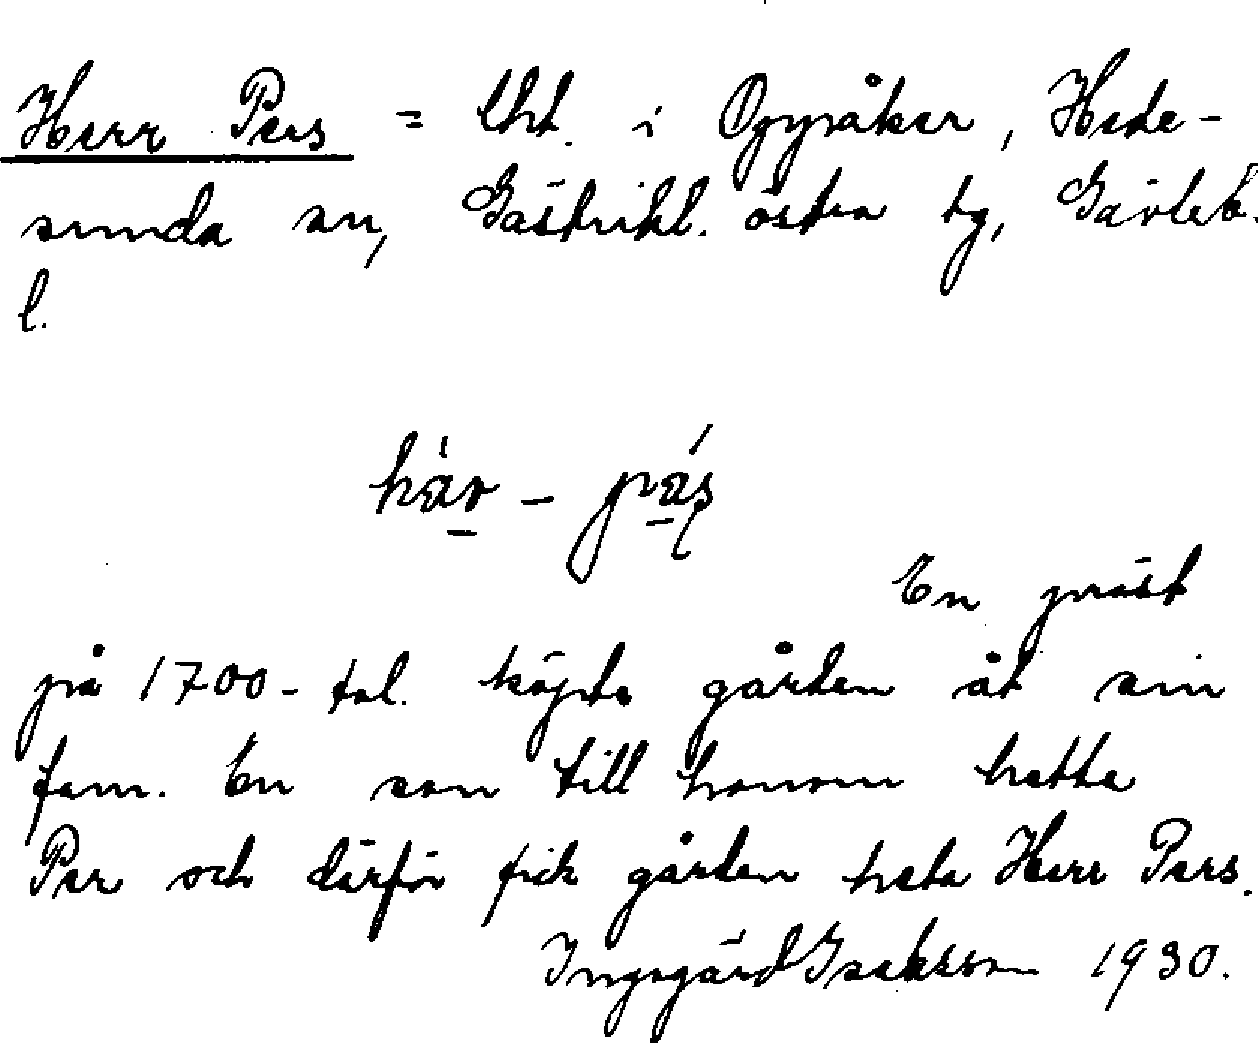 Herr Pers = Lht. i Ogyråker, Hede-
sunda sn, Gästrikl. östra tg, Gävleb.
l.
här - päs
En präst
på 1700-tal. köpte gården åt sin
fam. En son till honom hette
Per och därför fick gården heta Herr Pers.
Ingegärd Isaksson 1930.